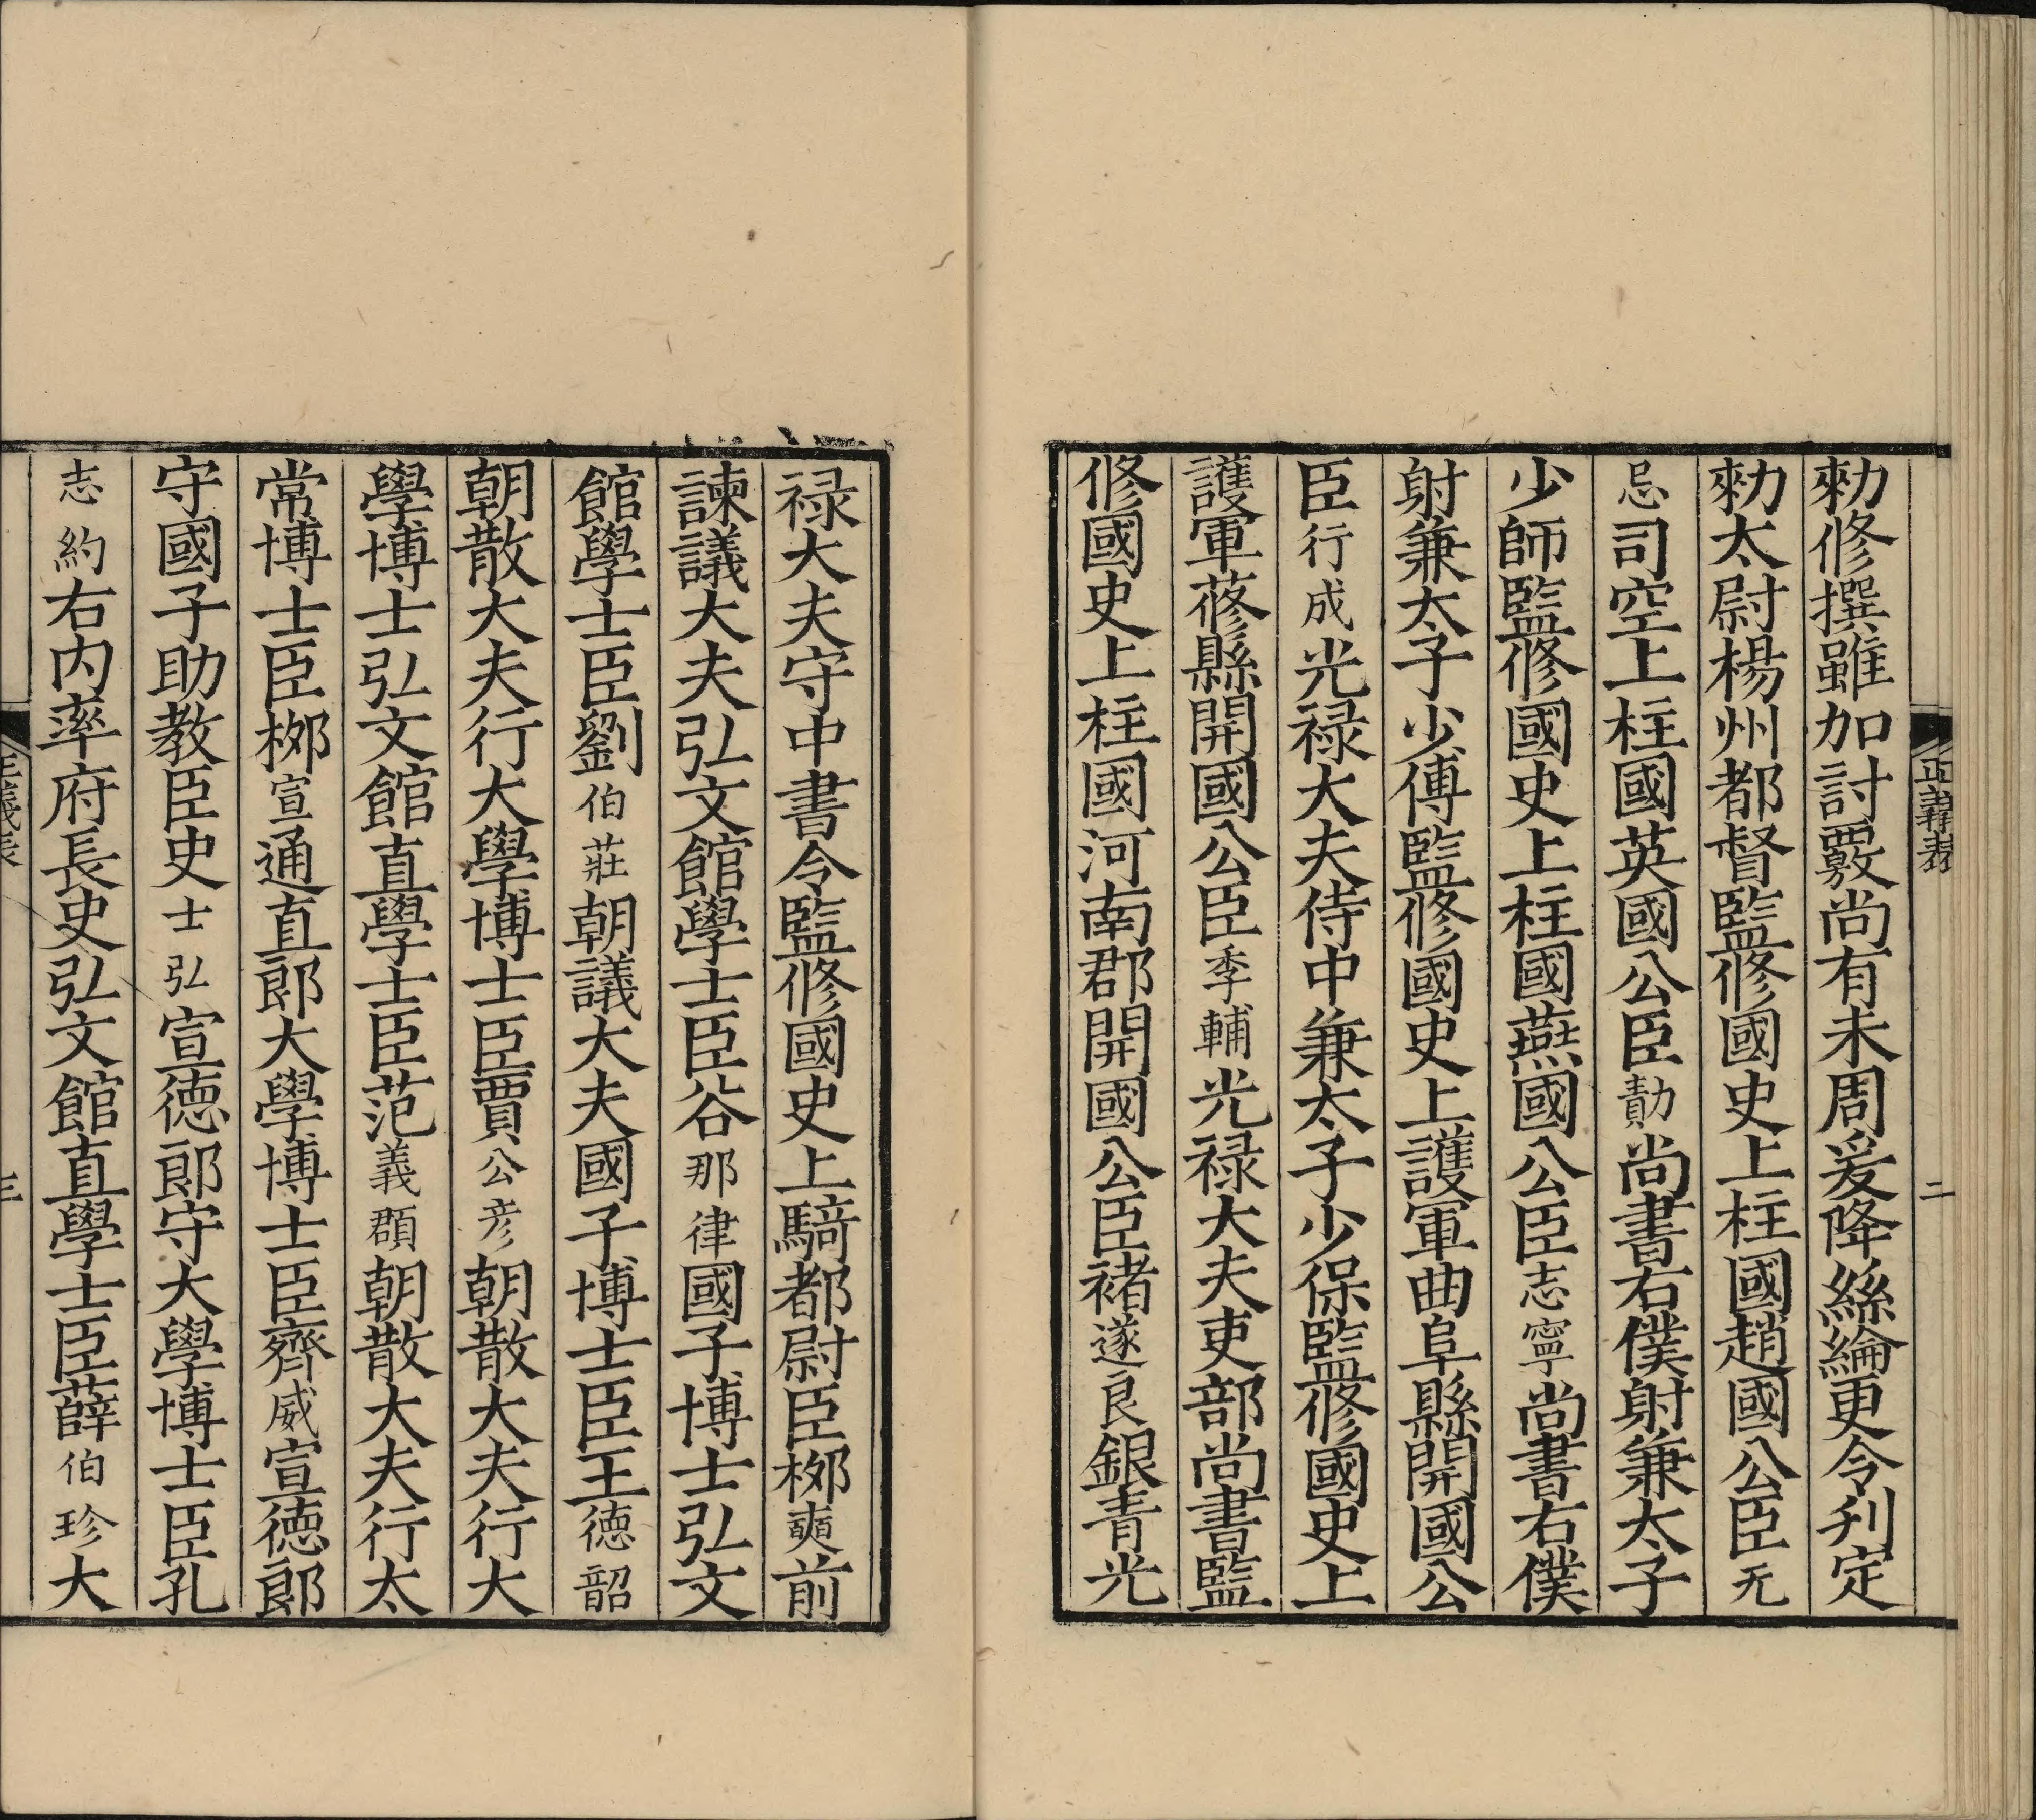 正義表
二
勑修撰雖加討覈尚有未周爰降絲綸更令刋定
勑太尉楊州都督監修國史上柱國趙國公臣无
忌司空上柱國英國公臣勣尚書右僕射兼太子
少師監修國史上柱國燕國公臣志寧尚書右僕
射兼太子少傅監修國史上護軍曲阜縣開國公
臣行成光禄大夫侍中兼太子少保監修國史上
護軍蓚縣開國公臣季輔光禄大夫吏部尚書監
修國史上柱國河南郡開國公臣褚遂良銀青光
禄大夫守中書令監修國史上騎都尉臣桞奭前
諫議大夫弘文館學士臣谷那律國子博士弘文
館學士臣劉伯莊朝議大夫國子博士臣王德韶
朝散大夫行大學博士臣賈公彦朝散大夫行大
學博士弘文館直學士臣范義頵朝散大夫行太
常博士臣桞宣通直郎大學博士臣齊威宣德郎
守國子助教臣史士弘宣德郎守大學博士臣孔
志約右内率府長史弘文館直學士臣薛伯珍大
正義表
三